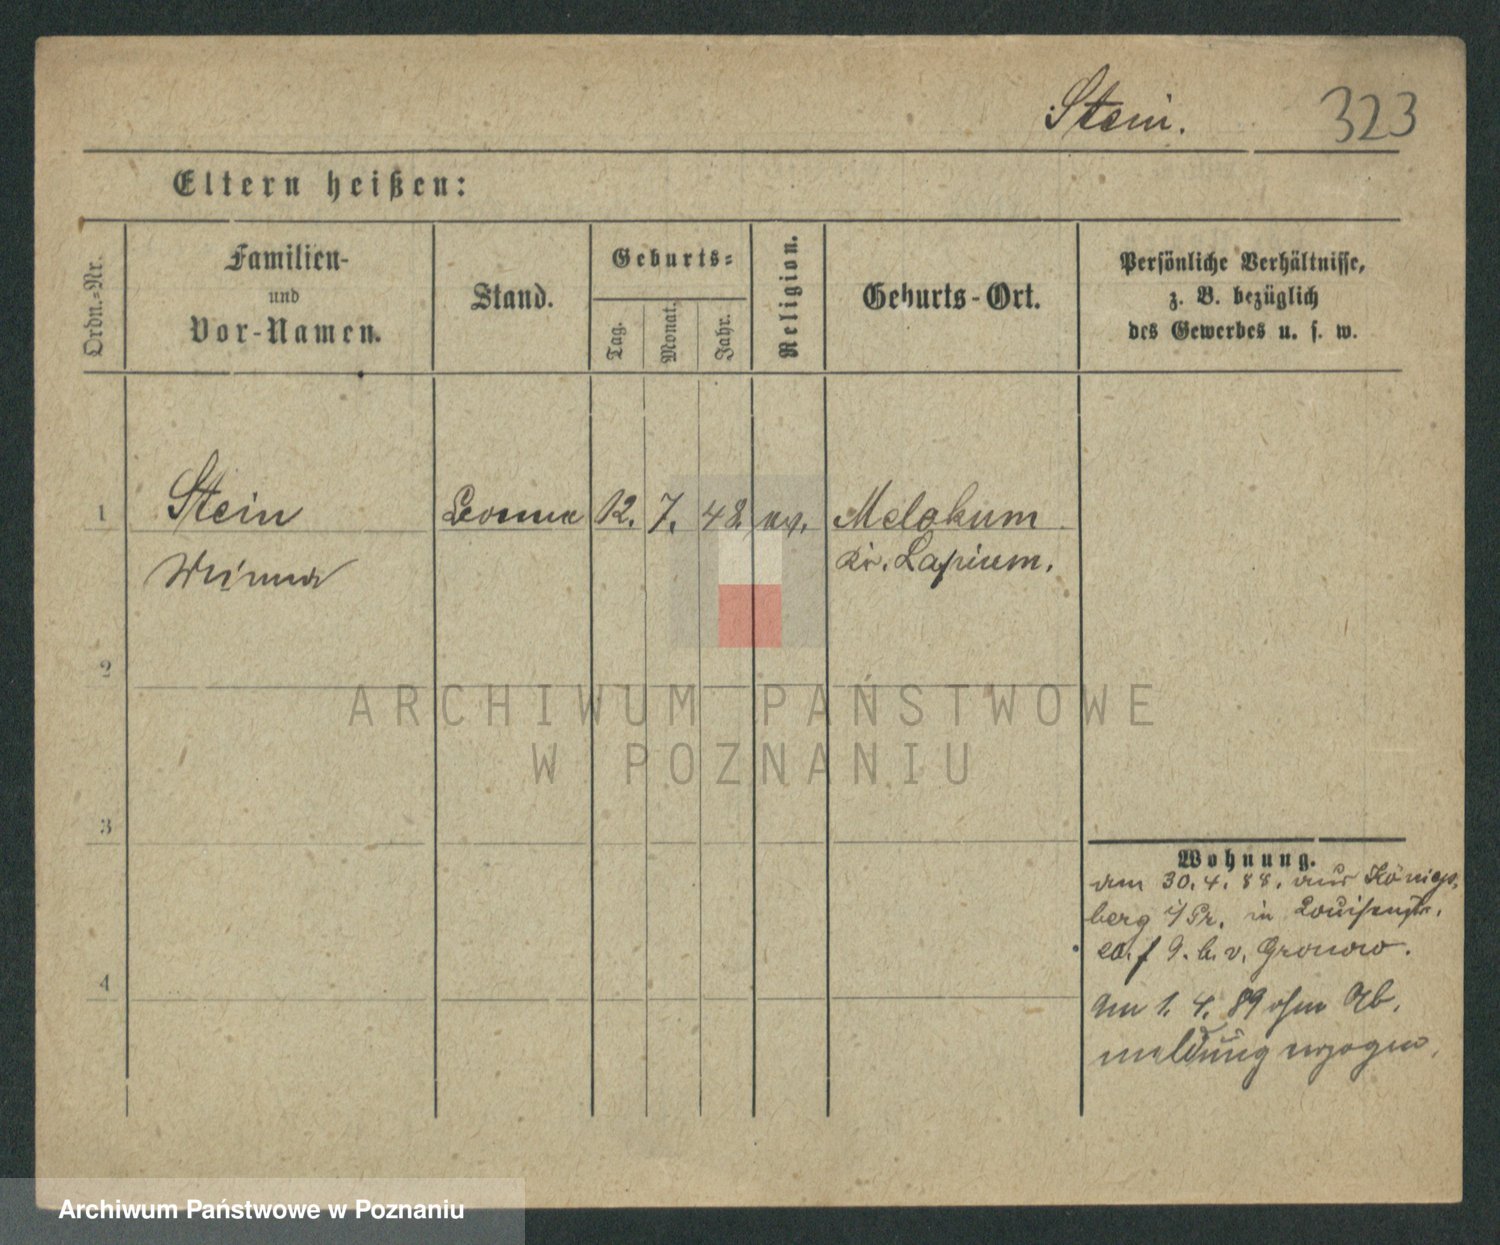 Stein. 323
Eltern heißen:
Ordn.-Nr.
Familien-
und
Vor-Namen.
Stand.
Geburts-
Tag.
Monat.
Jahr.
Religion.
Geburts-Ort.
Persönliche Verhältnisse,
z. B. bezüglich
des Gewerbes u. s. w.
1 Stein Bonne 12. 7. 48. ev. Melokum
Kr. Lapium.
2
ARCHIWUM PAŃSTWOWE
W POZNANIU
3
Wohnung.
am 30. 4. 88. aus Königs-
berg i/Pr. in Louisenstr.
9. b. v. Gronow.
4
Am 1. 4. 89 ohne Ab-
meldung verzogen.
Archiwum Państwowe w Poznaniu